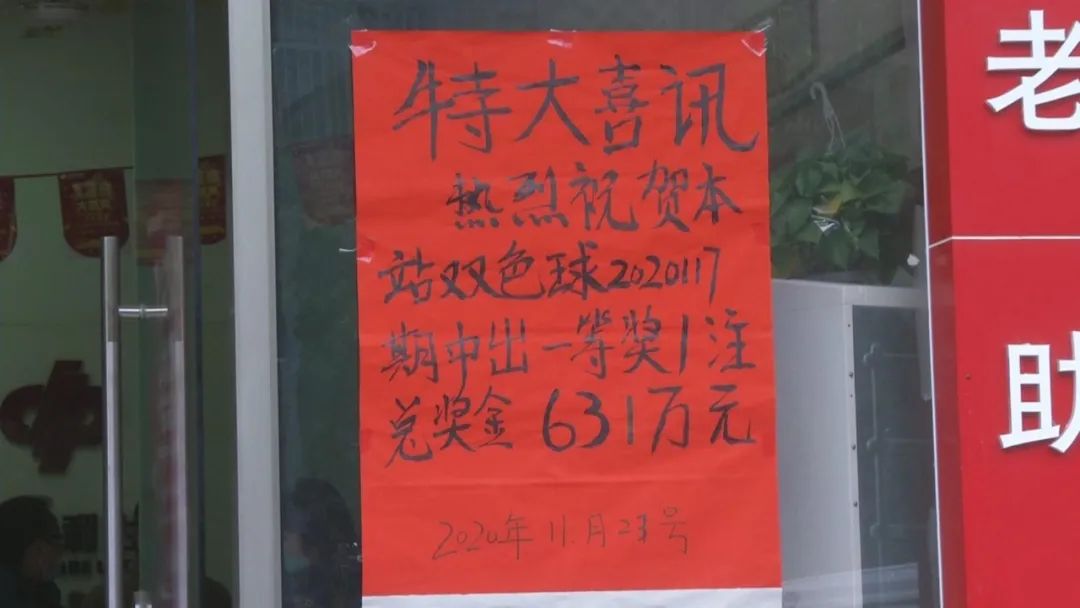 特大喜讯
热烈祝贺本
站双色球2020117
期中出一等奖1注
兑奖金 631万元
2020年 11.月2 号
老
助